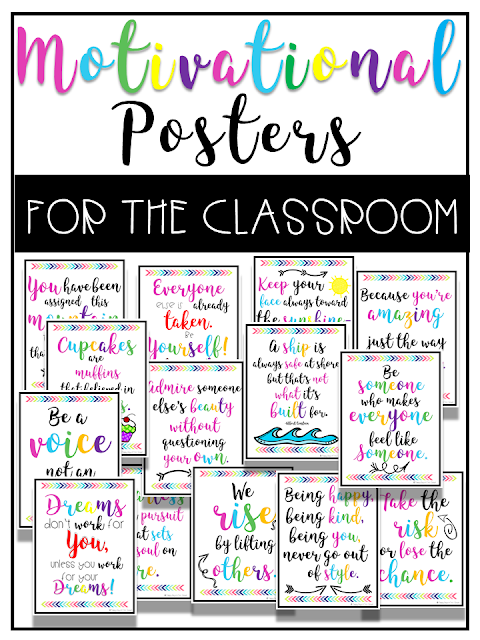 Motivational
Posters
FOR THE CLASSROOM
You have been
assigned this
mountain
tha
Everyone
else is already
taken.
Be
Yourself!
Keep your
face always toward
the sunshine
Because you're
amazing
just the way
Cupcakes
are
muffins
that believed in
Admire someone
else's beauty
without
questioning
your own.
A ship is
always safe at shore
but that's not
what it's
built for.
Be
someone
who makes
everyone
feel like
someone.
Be a
voice
not an
Dreams
don't work for
You,
unless you work
for your
Dreams!
pursuit
at sets
soul on
re.
We
rise
by lifting
others.
Being happy,
being kind,
being you,
never go out
of style.
Take the
risk
or lose the
chance.